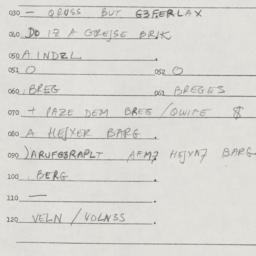 030 — QRUSS BUT G3FERLAX
040 DO IZ A GREJSE BRJK
050 A INDZL
051 O 052 O
060 BREG 061 BREGES
070 + PAZE DEM BREG / QWIFE $
080 A HEJXER BARG
090 )ARUFGBRAPLT AFM7 HEJXN7 BARG
100 BERG
110 —
120 VELN / VOLN3S